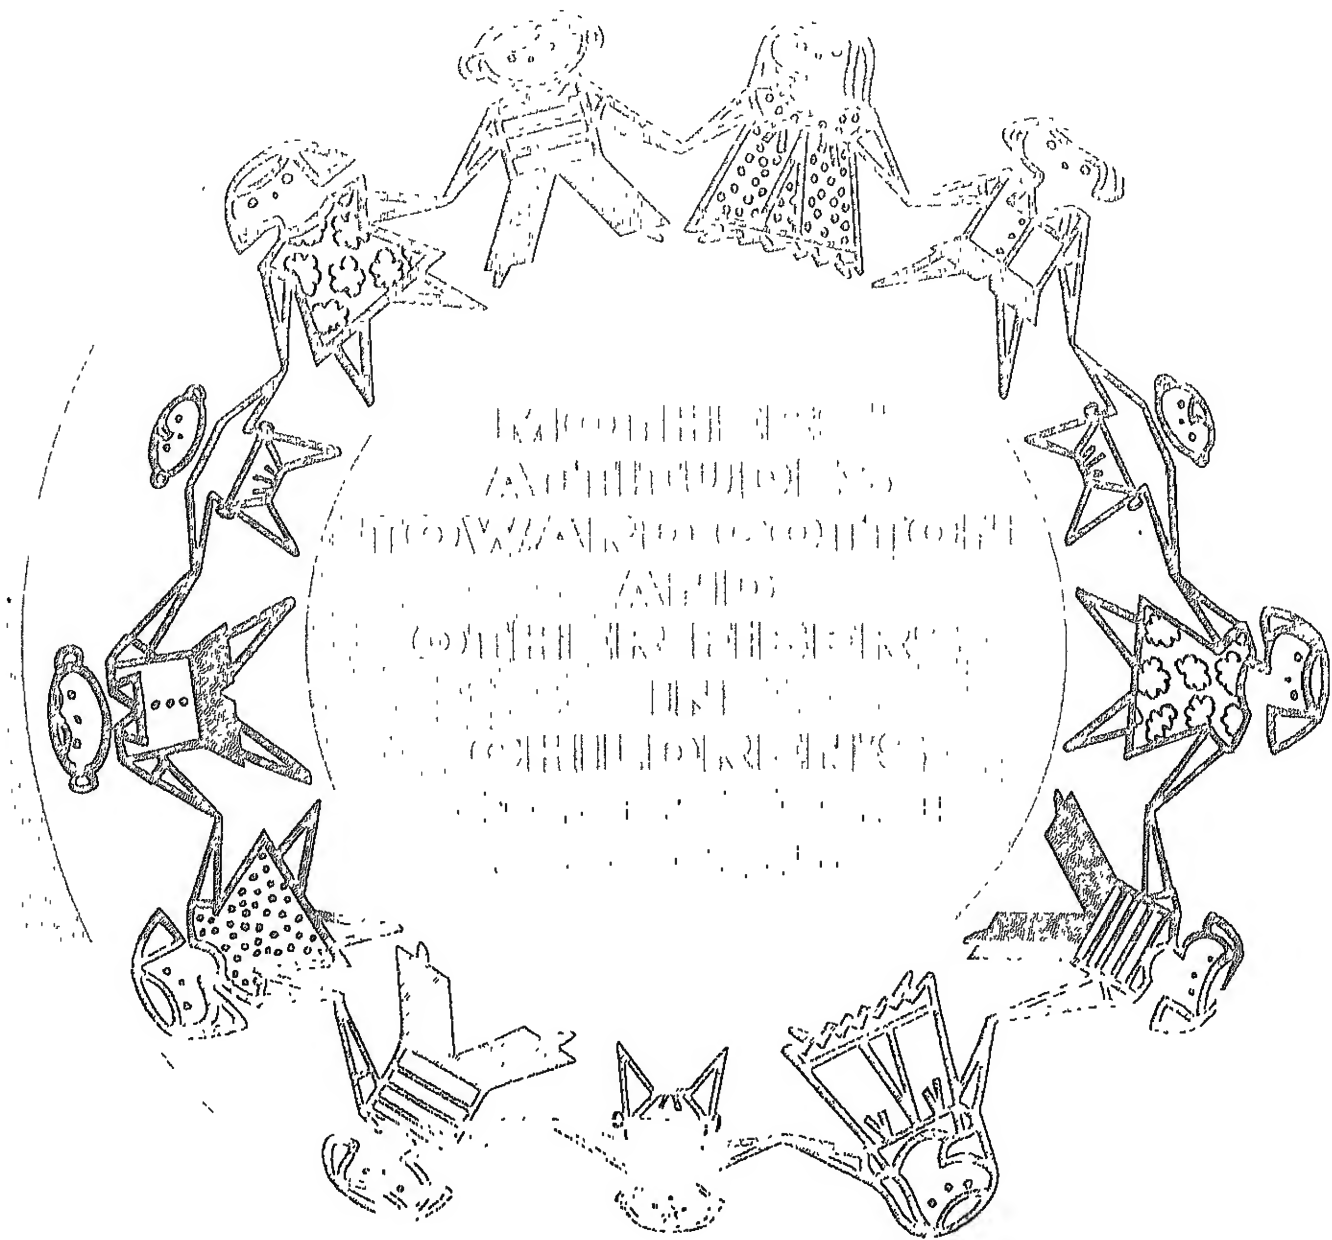 MOTHERS'
ATTITUDES
TOWARD COTTON
AND
OTHER FIBERS
IN
CHILDREN'S